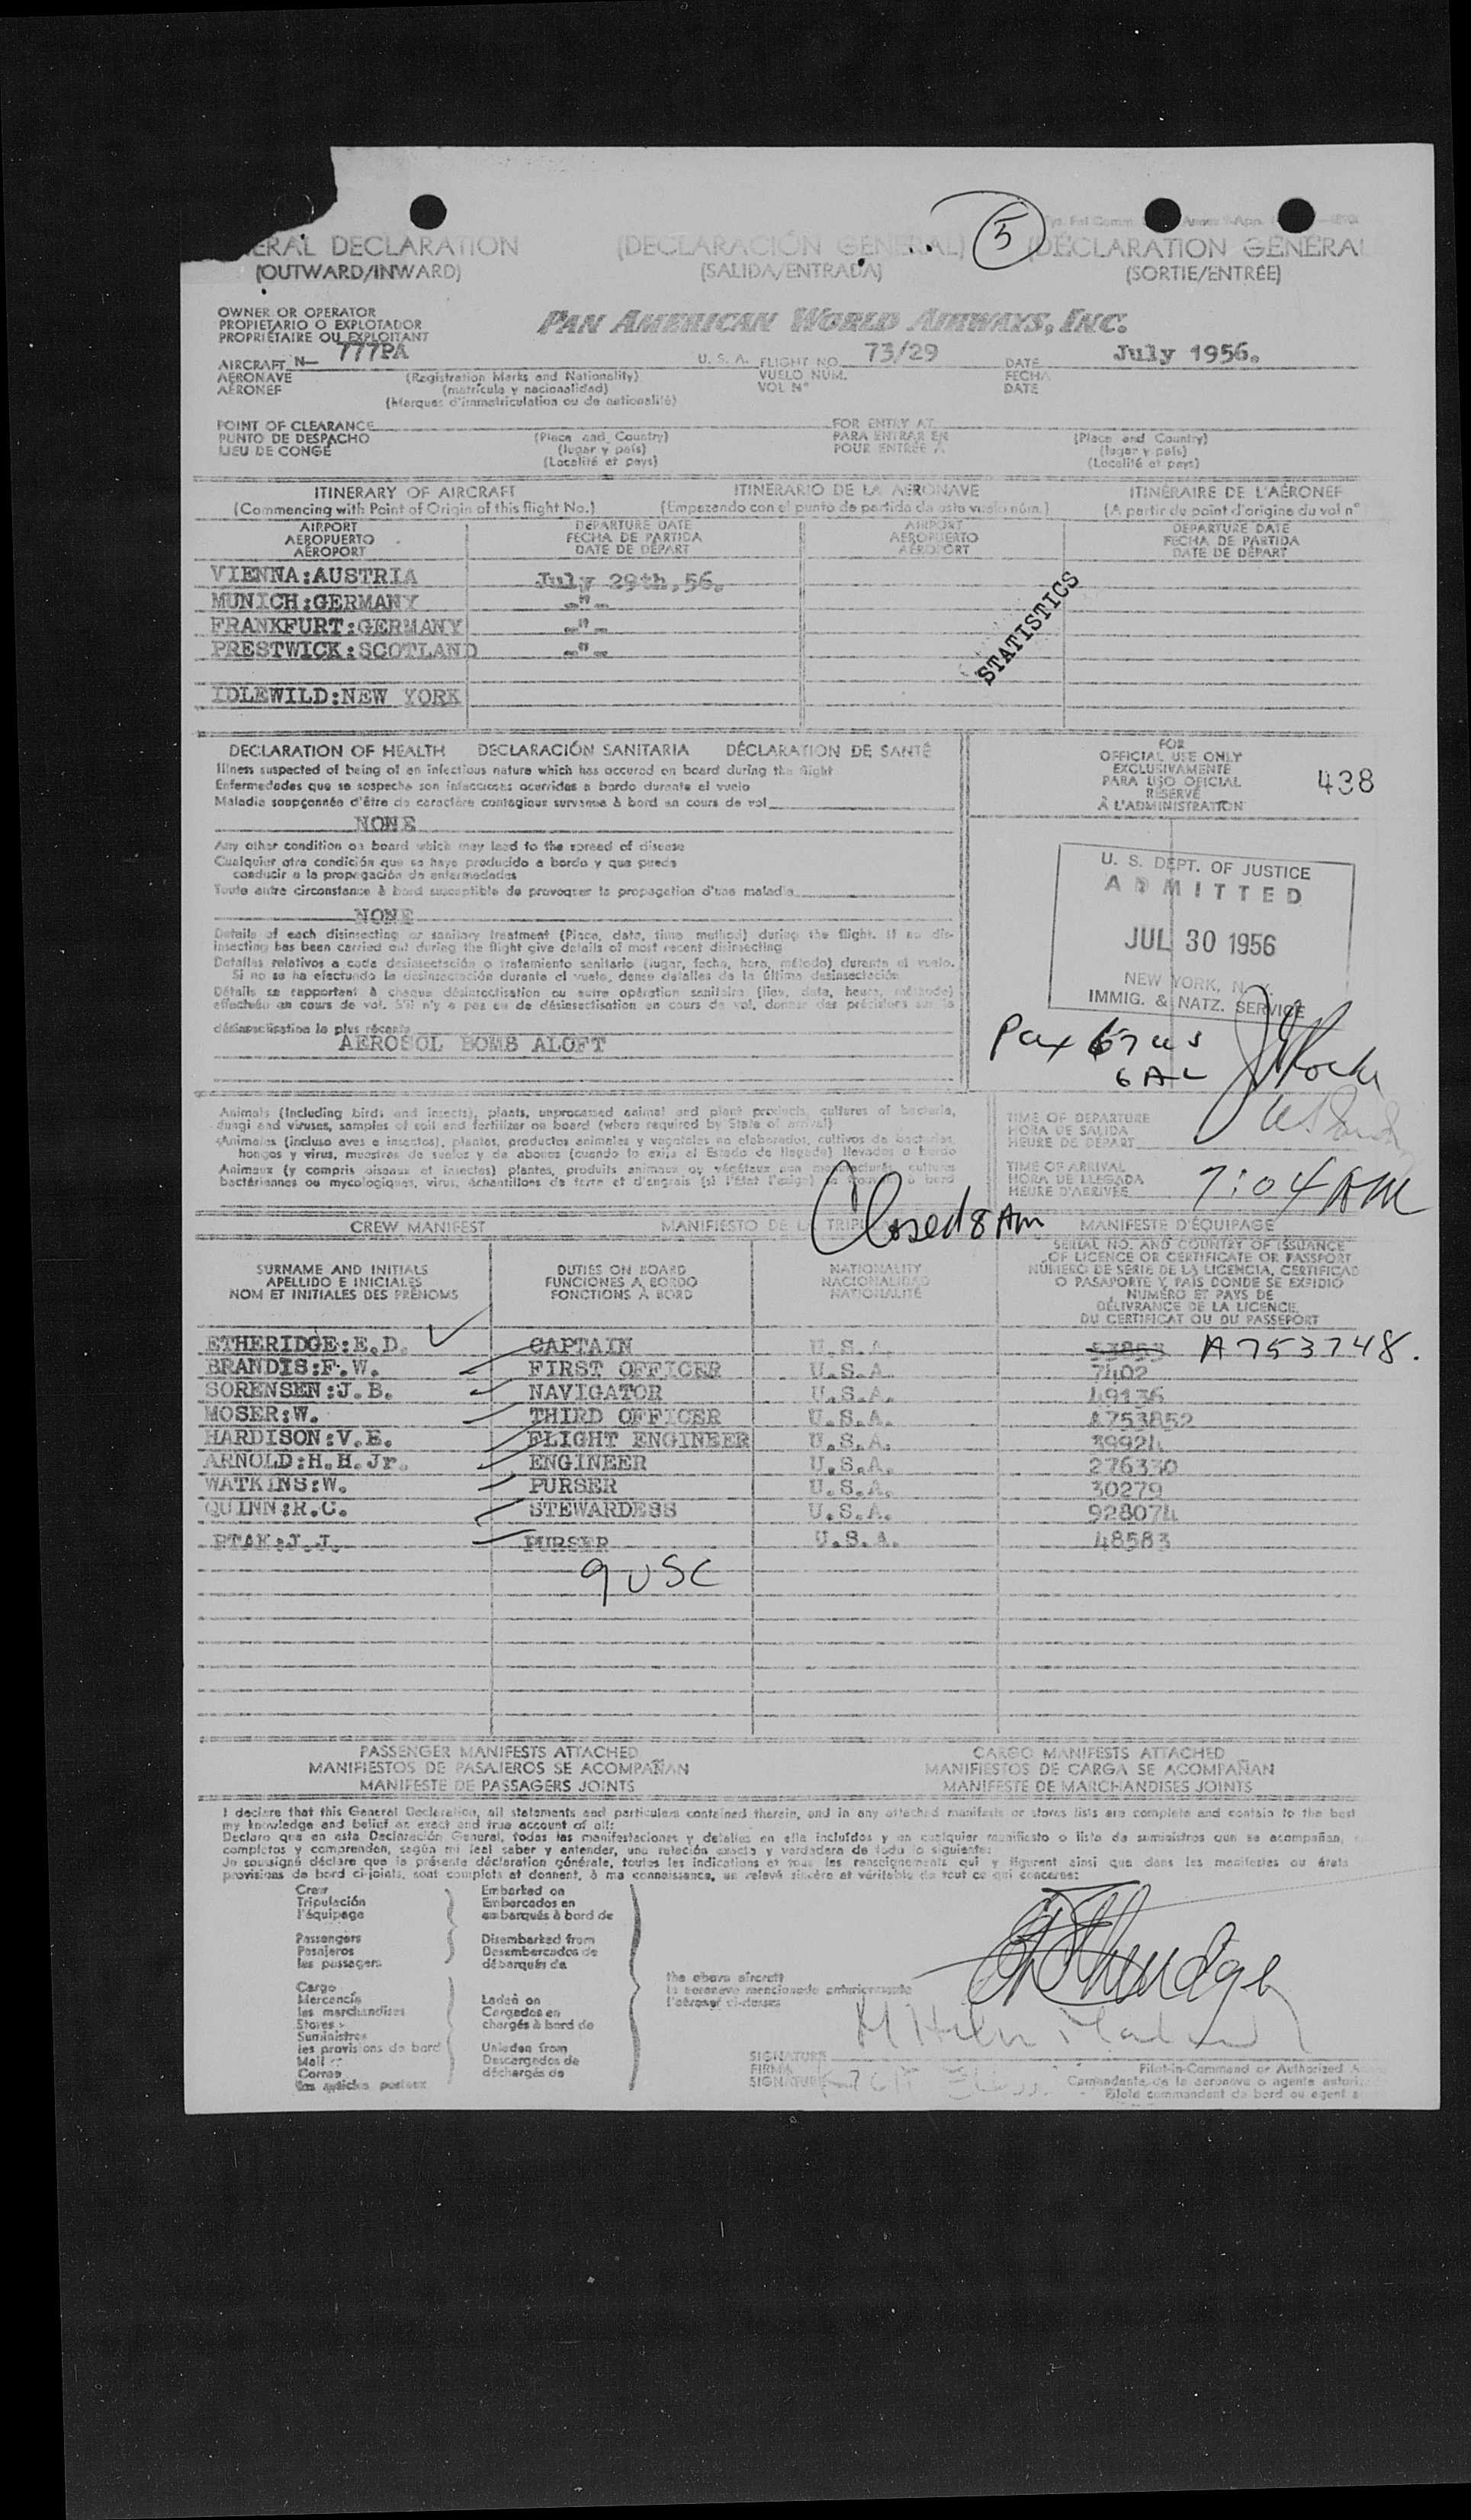 5
ERAL DECLARATION (DECLARACIÓN GENERAL) (DÉCLARATION GÉNÉRAL
(OUTWARD/INWARD) (SALIDA/ENTRADA) (SORTIE/ENTRÉE)
OWNER OR OPERATOR
PROPIETARIO O EXPLOTADOR
PROPRIÉTAIRE OU EXPLOITANT
PAN AMERICAN WORLD AIRWAYS, INC.
AIRCRAFT N— 777PA U. S. A. FLIGHT NO. 73/29 DATE July 1956.
AERONAVE (Registration Marks and Nationality) VUELO NUM. FECHA
AÉRONEF (matrícula y nacionalidad) VOL Nº DATE
(Marques d'immatriculation ou de nationalité)
POINT OF CLEARANCE FOR ENTRY AT
PUNTO DE DESPACHO (Place and Country) PARA ENTRAR EN (Place and Country)
LIEU DE CONGÉ (lugar y país) POUR ENTRÉE À (lugar y país)
(Localité et pays) (Localité et pays)
ITINERARY OF AIRCRAFT ITINERARIO DE LA AERONAVE ITINÉRAIRE DE L'AÉRONEF
(Commencing with Point of Origin of this flight No.) (Empezando con el punto de partida de este vuelo núm.) (A partir du point d'origine du vol nº
AIRPORT DEPARTURE DATE AIRPORT DEPARTURE DATE
AEROPUERTO FECHA DE PARTIDA AEROPUERTO FECHA DE PARTIDA
AÉROPORT DATE DE DÉPART AÉROPORT DATE DE DÉPART
VIENNA:AUSTRIA July 29th,56.
MUNICH:GERMANY -"-
FRANKFURT:GERMANY -"-
PRESTWICK:SCOTLAND -"-
IDLEWILD:NEW YORK
STATISTICS
DECLARATION OF HEALTH DECLARACIÓN SANITARIA DÉCLARATION DE SANTÉ
Illness suspected of being of an infectious nature which has occured on board during the flight
Enfermedades que se sospecha son infecciosas ocurridas a bordo durante el vuelo
Maladie soupçonnée d'être de caractère contagieux survenue à bord en cours de vol
NONE
Any other condition on board which may lead to the spread of disease
Cualquier otra condición que se haya producido a bordo y que pueda
conducir a la propagación de enfermedades
Toute autre circonstance à bord susceptible de provoquer la propagation d'une maladie
NONE
Details of each disinsecting or sanitary treatment (Place, date, time method) during the flight. If no dis-
insecting has been carried out during the flight give details of most recent disinsecting
Detalles relativos a cada desinsectación o tratamiento sanitario (lugar, fecha, hora, método) durante el vuelo.
Si no se ha efectuado la desinsectación durante el vuelo, dense detalles de la última desinsectación
Détails se rapportant à chaque désinsectisation ou autre opération sanitaire (lieu, date, heure, méthode)
effectuée en cours de vol. S'il n'y a pas eu de désinsectisation en cours de vol, donner des précisions sur la
désinsectisation la plus récente
AEROSOL BOMB ALOFT
FOR
OFFICIAL USE ONLY
EXCLUSIVAMENTE
PARA USO OFICIAL
RÉSERVÉ
À L'ADMINISTRATION
438
U. S. DEPT. OF JUSTICE
ADMITTED
JUL 30 1956
NEW YORK, N. Y.
IMMIG. & NATZ. SERVICE
Pax 67 us
6 AL
Animals (Including birds and insects), plants, unprocessed animal and plant products, cultures of bacteria,
fungi and viruses, samples of soil and fertilizer on board (where required by State of arrival)
Animales (incluso aves e insectos), plantas, productos animales y vegetales no elaborados, cultivos de bacterias,
hongos y virus, muestras de suelos y de abonos (cuando lo exija el Estado de llegada) llevados a bordo
Animaux (y compris oiseaux et insectes) plantes, produits animaux ou végétaux non manufacturés, cultures
bactériennes ou mycologiques, virus, échantillons de terre et d'engrais (si l'État l'exige) à bord
TIME OF DEPARTURE
HORA DE SALIDA
HEURE DE DÉPART
TIME OF ARRIVAL
HORA DE LLEGADA
HEURE D'ARRIVÉE
7:04 AM
Closed 8 Am
CREW MANIFEST MANIFIESTO DE LA TRIP MANIFESTE D'ÉQUIPAGE
SURNAME AND INITIALS DUTIES ON BOARD NATIONALITY
APELLIDO E INICIALES FUNCIONES A BORDO NACIONALIDAD
NOM ET INITIALES DES PRÉNOMS FONCTIONS À BORD NATIONALITÉ
SERIAL NO. AND COUNTRY OF ISSUANCE
OF LICENCE OR CERTIFICATE OR PASSPORT
NÚMERO DE SERIE DE LA LICENCIA, CERTIFICAD
O PASAPORTE Y PAÍS DONDE SE EXPIDIÓ
NUMÉRO ET PAYS DE
DÉLIVRANCE DE LA LICENCE,
DU CERTIFICAT OU DU PASSEPORT
ETHERIDGE:E.D. CAPTAIN U.S.A. 53853 A753748.
BRANDIS:F.W. FIRST OFFICER U.S.A. 7402
SORENSEN:J.B. NAVIGATOR U.S.A. 49136
MOSER:W. THIRD OFFICER U.S.A. A753852
HARDISON:V.E. FLIGHT ENGINEER U.S.A. 39924
ARNOLD:H.H.Jr. ENGINEER U.S.A. 276330
WATKINS:W. PURSER U.S.A. 30279
QUINN:R.C. STEWARDESS U.S.A. 928074
PTAK:J.J. PURSER U.S.A. 48583
9 USC
PASSENGER MANIFESTS ATTACHED CARGO MANIFESTS ATTACHED
MANIFIESTOS DE PASAJEROS SE ACOMPAÑAN MANIFIESTOS DE CARGA SE ACOMPAÑAN
MANIFESTE DE PASSAGERS JOINTS MANIFESTE DE MARCHANDISES JOINTS
I declare that this General Declaration, all statements and particulars contained therein, and in any attached manifests or stores lists are complete and contain to the best
my knowledge and belief an exact and true account of all:
Declaro que en esta Declaración General, todas las manifestaciones y detalles en ella incluídos y en cualquier manifiesto o lista de suministros que se acompañan,
completos y comprenden, según mi leal saber y entender, una relación exacta y verdadera de todo lo siguiente:
Je soussigné déclare que la présente déclaration générale, toutes les indications et tous les renseignements qui y figurent ainsi que dans les manifestes ou états
provisions de bord ci-joints, sont complets et donnent, à ma connaissance, un relevé sincère et véritable de tout ce qui concerne:
Crew Embarked on
Tripulación Embarcados en
l'équipage embarqués à bord de
Passengers Disembarked from
Pasajeros Desembarcados de
les passagers débarqués de
Cargo
Mercancía Laden on
les marchandises Cargados en
Stores chargés à bord de
Suministros
les provisions de bord Unladen from
Mail Descargados de
Correo déchargés de
les articles postaux
the above aircraft
la aeronave mencionada anteriormente
l'aéronef ci-dessus
SIGNATURE
FIRMA
SIGNATURE
Pilot-in-Command or Authorized
Comandante de la aeronave o agente autori
Pilote commandant de bord ou agent a